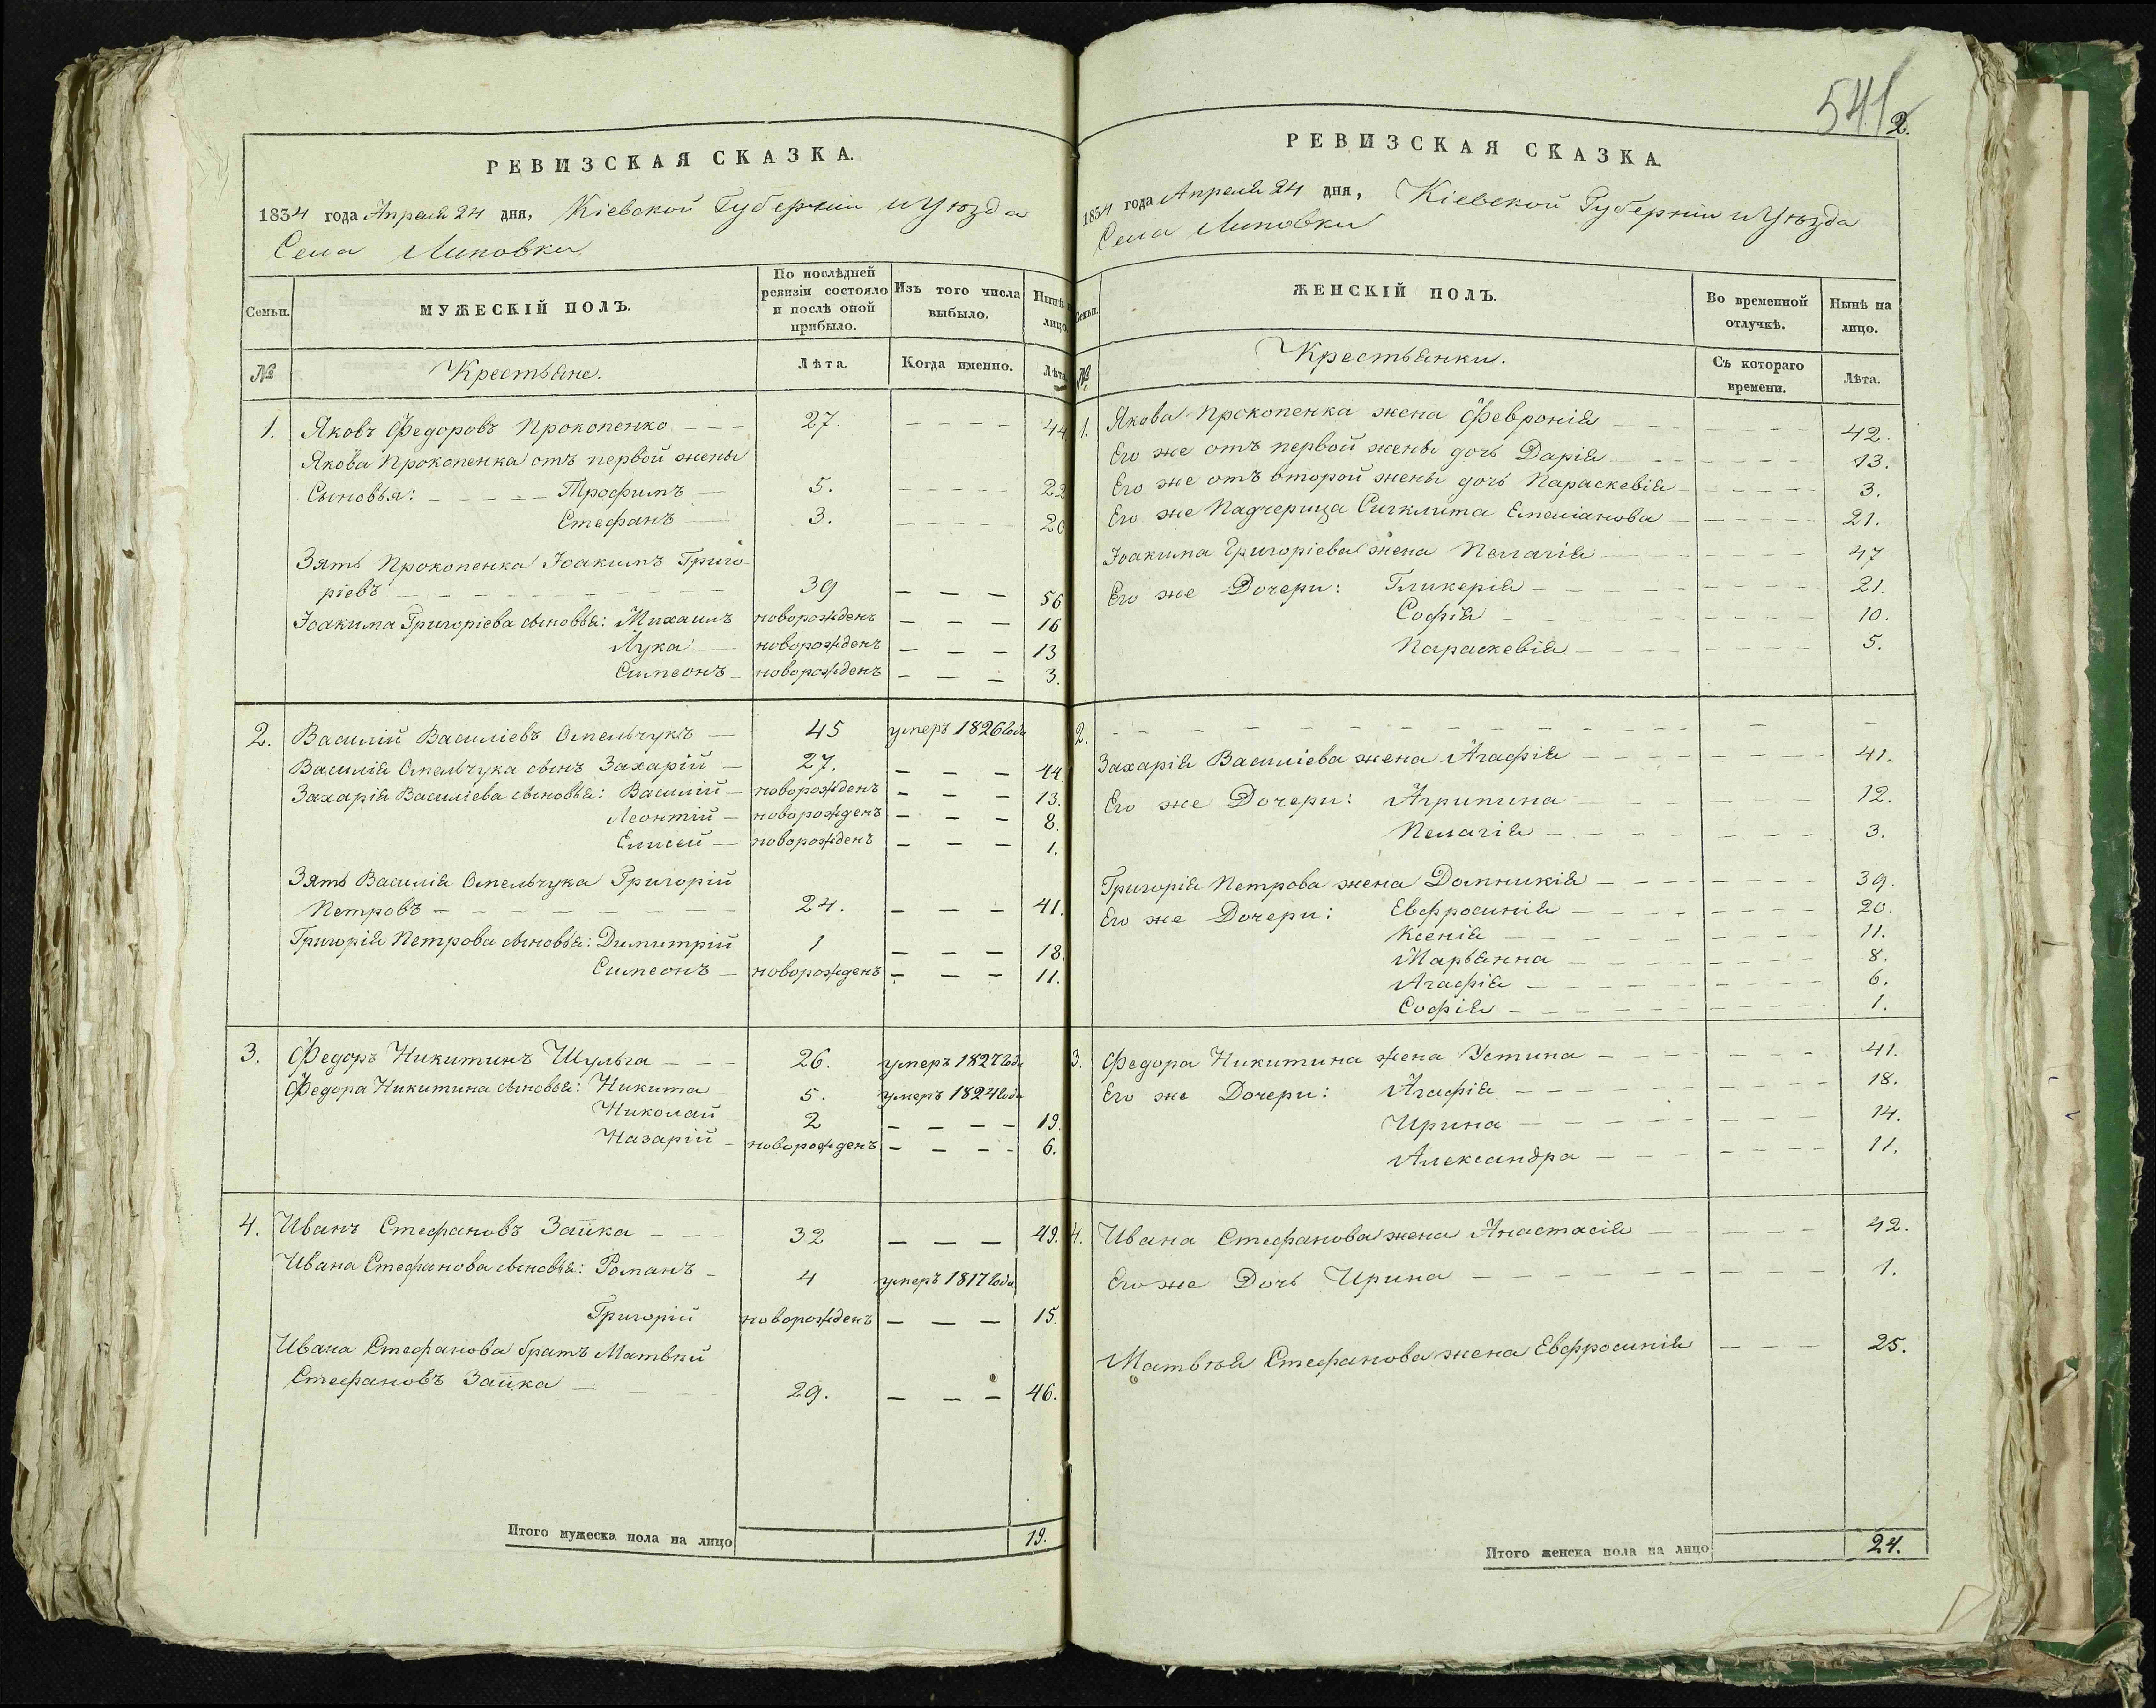 РЕВИЗСКАЯ СКАЗКА.
1834 года Апреля 24 дня, Кіевской Губерніи и Уѣзда
Села Липовки
Семьи.
МУЖЕСКІЙ ПОЛЪ.
По послѣдней ревизіи состояло и послѣ оной прибыло.
Изъ того числа выбыло.
Нынѣ на лицо.
№
Крестьяне.
Лѣта.
Когда именно.
Лѣта
1. Яковъ Федоровъ Прокопенко — — — 27. — — — — 44.
Якова Прокопенка отъ первой жены
Сыновья: — — — — Трофимъ — 5. — — — — 22
Стефанъ — 3. — — — — 20
Зять Прокопенка Іоакимъ Григо-
ріевъ — — — — — — — 39 — — — 56
Іоакима Григоріева сыновья: Михаилъ новорожденъ — — — 16
Лука — новорожденъ — — — 13
Симеонъ — новорожденъ — — — 3.
2. Василій Василіевъ Омельчукъ — 45 умеръ 1826 года
Василія Омельчука сынъ Захарій — 27. — — — 44
Захарія Василіева сыновья: Василій — новорожденъ — — — 13.
Леонтій — новорожденъ — — — 8.
Елисей — новорожденъ — — — 1.
Зять Василія Омельчука Григорій
Петровъ — — — — — — — 24. — — — 41.
Григорія Петрова сыновья: Димитрій 1 — — — 18.
Симеонъ — новорожденъ — — — 11.
3. Федоръ Никитинъ Шульга — — — 26. умеръ 1827 года
Федора Никитина сыновья: Никита 5. умеръ 1824 года
Николай 2 — — — — 19.
Назарій — новорожденъ — — — — 6.
4. Иванъ Стефановъ Заика — — — 32 — — — 49.
Ивана Стефанова сыновья: Романъ — 4 умеръ 1817 года
Григорій новорожденъ — — — 15.
Ивана Стефанова братъ Матвѣй
Стефановъ Заика — — — 29. — — — 46.
Итого мужеска пола на лицо 19.
541
2.
РЕВИЗСКАЯ СКАЗКА.
1834 года Апреля 24 дня, Кіевской Губерніи и Уѣзда
Села Липовки
Семьи.
ЖЕНСКІЙ ПОЛЪ.
Во временной отлучкѣ.
Нынѣ на лицо.
№
Крестьянки.
Съ котораго времени.
Лѣта.
1. Якова Прокопенка жена Февронія — — — — — 42.
Его же отъ первой жены дочь Дарія — — — — — 13.
Его же отъ второй жены дочь Параскевія — — — — 3.
Его же Падчерица Сигклита Емеліанова — — — — 21.
Іоакима Григоріева жена Пелагія — — — — — 47
Его же Дочери: Гликерія — — — — — 21.
Софія — — — — — 10.
Параскевія — — — — — 5.
2. — — — — — — — — — —
Захарія Василіева жена Агафія — — — — — 41.
Его же Дочери: Агрипина — — — — — 12.
Пелагія — — — — — 3.
Григорія Петрова жена Домникія — — — — — 39.
Его же Дочери: Евфросинія — — — — — 20.
Ксенія — — — — — 11.
Марьянна — — — — — 8.
Агафія — — — — — 6.
Софія — — — — — 1.
3. Федора Никитина жена Устина — — — — — 41.
Его же Дочери: Агафія — — — — — 18.
Ирина — — — — — 14.
Александра — — — — — 11.
4. Ивана Стефанова жена Анастасія — — — — 42.
Его же Дочь Ирина — — — — — 1.
Матвѣя Стефанова жена Евфросинія — — — 25.
Итого женска пола на лицо 24.